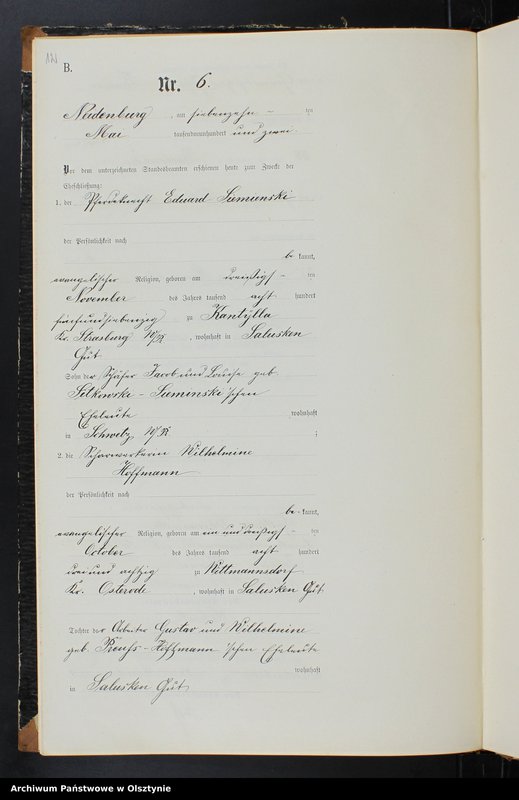 B.
Nr. 6.
Neidenburg, am siebenzehn ten
Mai tausendneunhundert und zwei
Vor dem unterzeichneten Standesbeamten erschienen heute zum Zweck der
Eheschließung:
1. der Pferdeknecht Eduard Sieminski
der Persönlichkeit nach
be kannt,
evangelischer Religion, geboren am dreißigs ten
November des Jahres tausend acht hundert
fünfundsiebenzig zu Kantylla
Kr. Strasburg W/Pr., wohnhaft in Salusken
Gut
Sohn der Schäfer Jacob und Louise geb
Sieminski'schen
Eheleute wohnhaft
in Schwetz W/Pr. ;
2. die Scharwerkerin Wilhelmine
Hoffmann
der Persönlichkeit nach
be kannt,
evangelischer Religion, geboren am ein und dreißigs ten
October des Jahres tausend acht hundert
drei und achtzig zu Wittmannsdorf
Kr. Osterode, wohnhaft in Salusken Gut
Tochter der Arbeiter Gustav und Wilhelmine
geb. Hoffmann'schen Eheleute
wohnhaft
in Salusken Gut
Archiwum Państwowe w Olsztynie